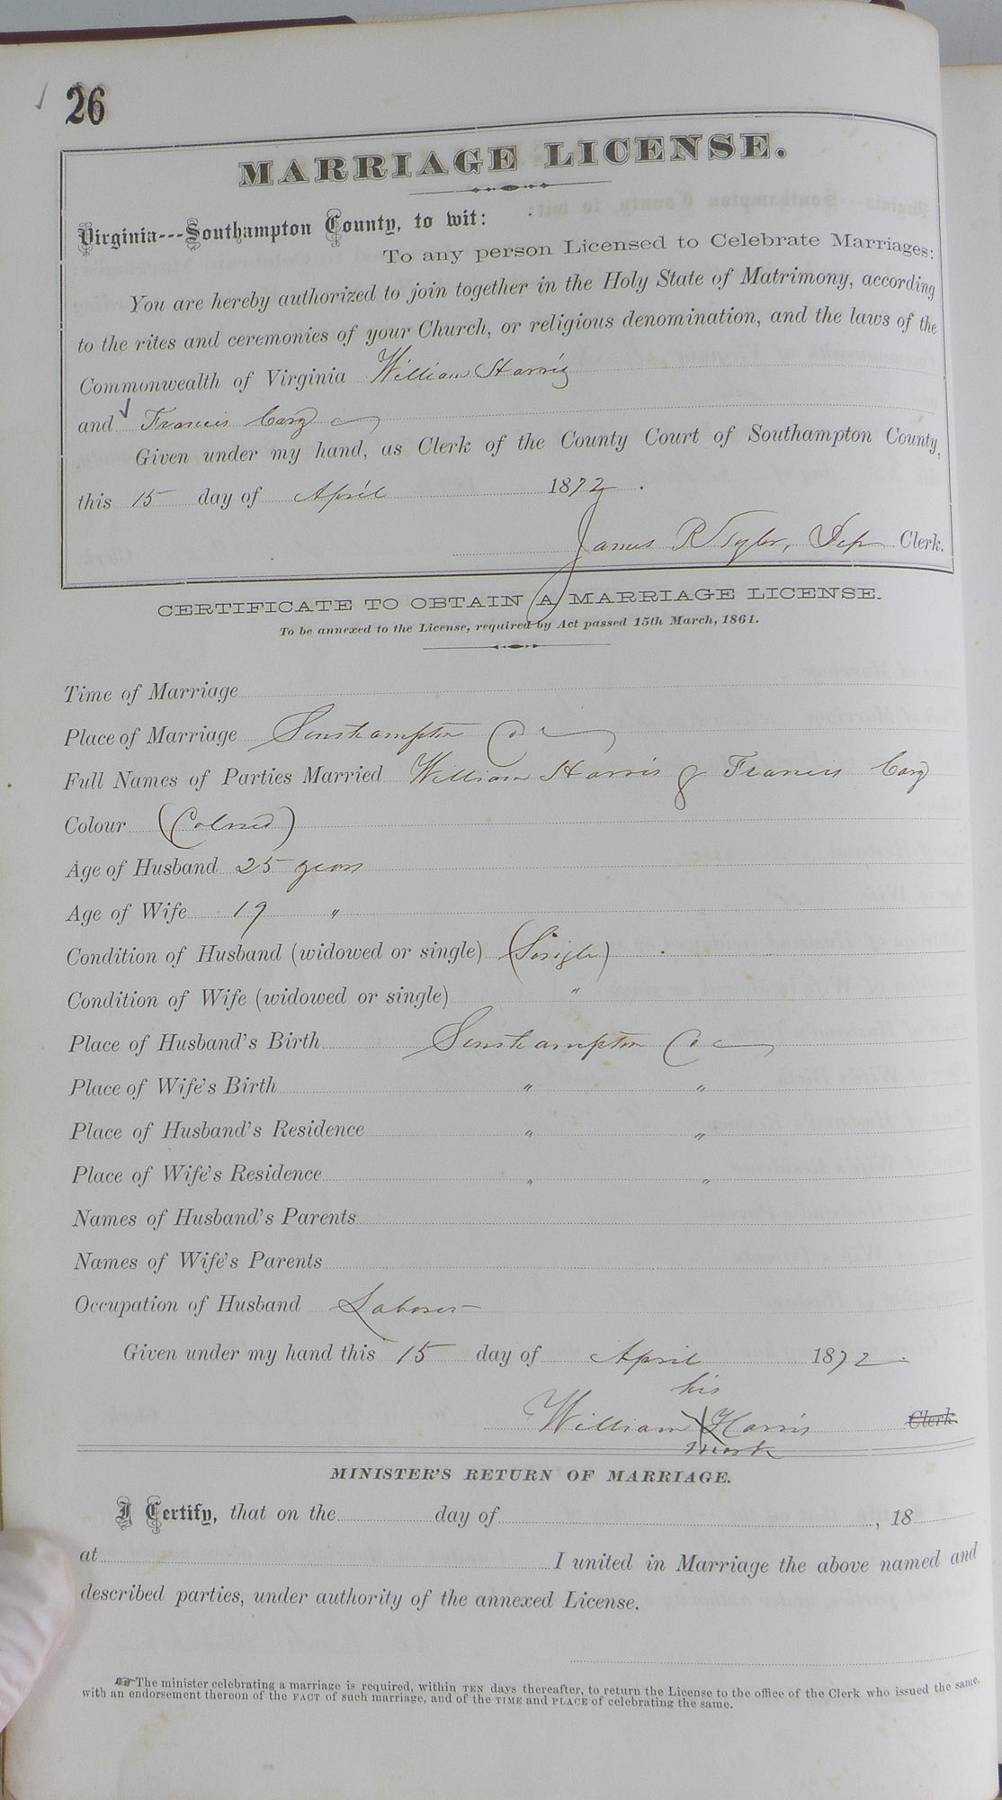 26
MARRIAGE LICENSE.
Virginia---Southampton County, to wit:
To any person Licensed to Celebrate Marriages:
You are hereby authorized to join together in the Holy State of Matrimony, according
to the rites and ceremonies of your Church, or religious denomination, and the laws of the
Commonwealth of Virginia William Harris
and Francis Cary
Given under my hand, as Clerk of the County Court of Southampton County,
this 15 day of April 1872.
James R Tyler, Dep Clerk.
CERTIFICATE TO OBTAIN A MARRIAGE LICENSE.
To be annexed to the License, required by Act passed 15th March, 1861.
Time of Marriage
Place of Marriage Southampton Co
Full Names of Parties Married William Harris & Francis Cary
Colour (Colored)
Age of Husband 25 years
Age of Wife 19 "
Condition of Husband (widowed or single) (Single)
Condition of Wife (widowed or single) "
Place of Husband's Birth Southampton Co
Place of Wife's Birth " "
Place of Husband's Residence " "
Place of Wife's Residence " "
Names of Husband's Parents
Names of Wife's Parents
Occupation of Husband Laborer
Given under my hand this 15 day of April 1872.
his
William X Harris Clerk.
mark
MINISTER'S RETURN OF MARRIAGE.
I Certify, that on the day of , 18
at I united in Marriage the above named and
described parties, under authority of the annexed License.
☞The minister celebrating a marriage is required, within TEN days thereafter, to return the License to the office of the Clerk who issued the same,
with an endorsement thereon of the FACT of such marriage, and of the TIME and PLACE of celebrating the same.